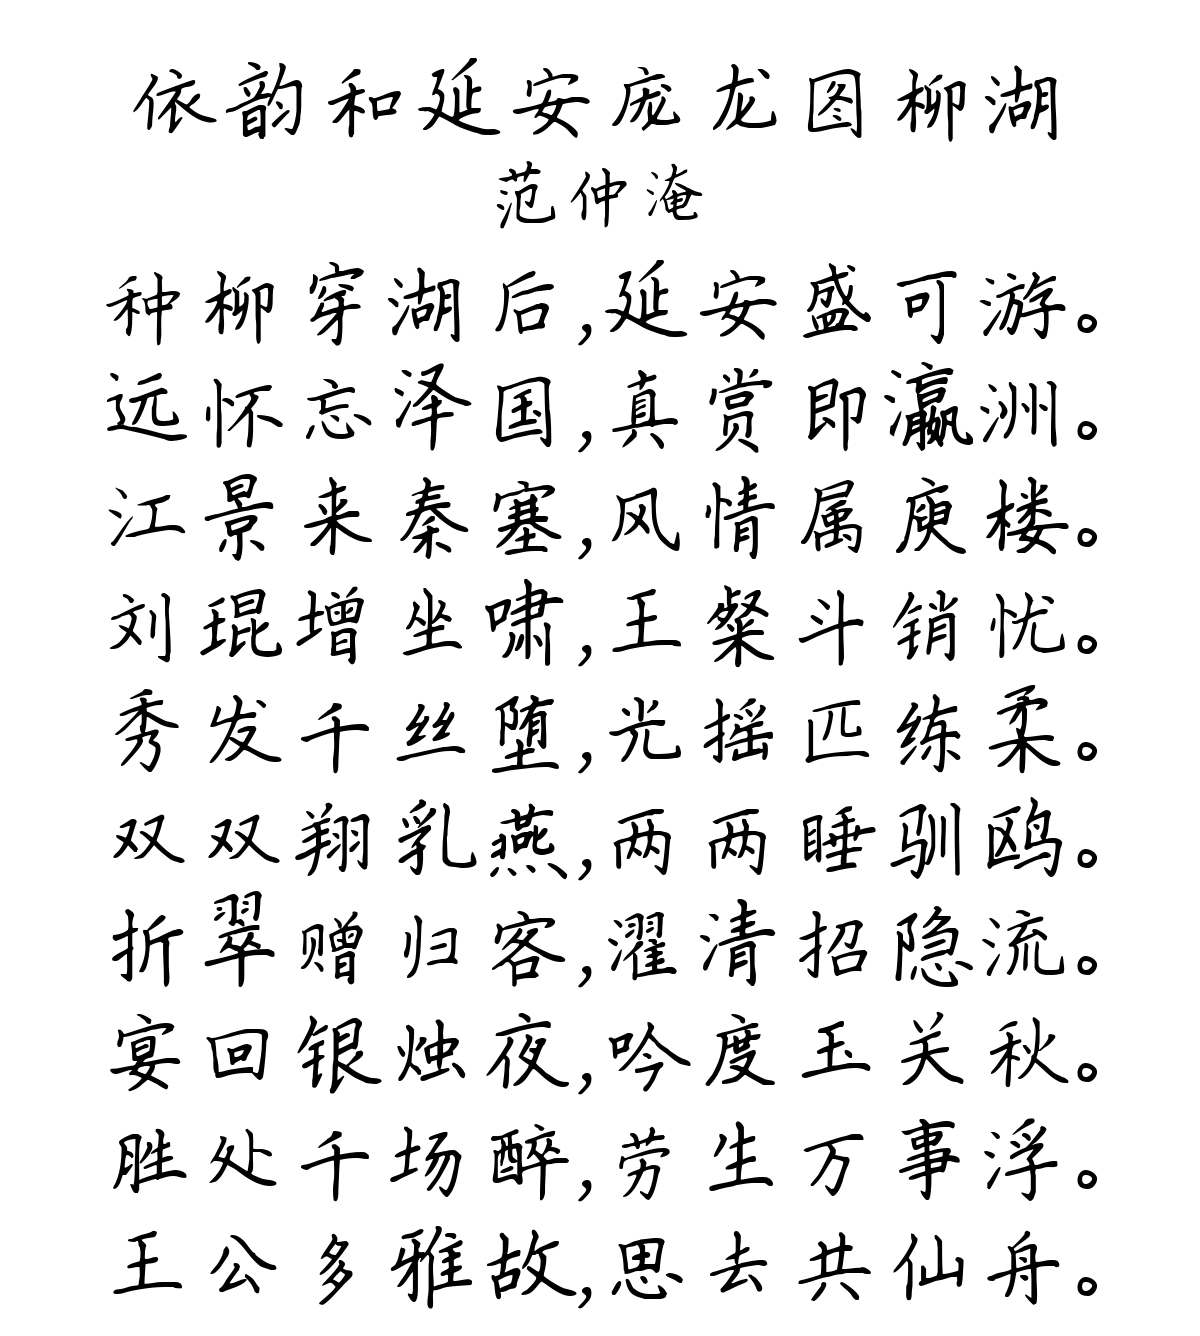 依韵和延安庞龙图柳湖
范仲淹
种柳穿湖后,延安盛可游。
远怀忘泽国,真赏即瀛洲。
江景来秦塞,风情属庾楼。
刘琨增坐啸,王粲斗销忧。
秀发千丝堕,光摇匹练柔。
双双翔乳燕,两两睡驯鸥。
折翠赠归客,濯清招隐流。
宴回银烛夜,吟度玉关秋。
胜处千场醉,劳生万事浮。
王公多雅故,思去共仙舟。